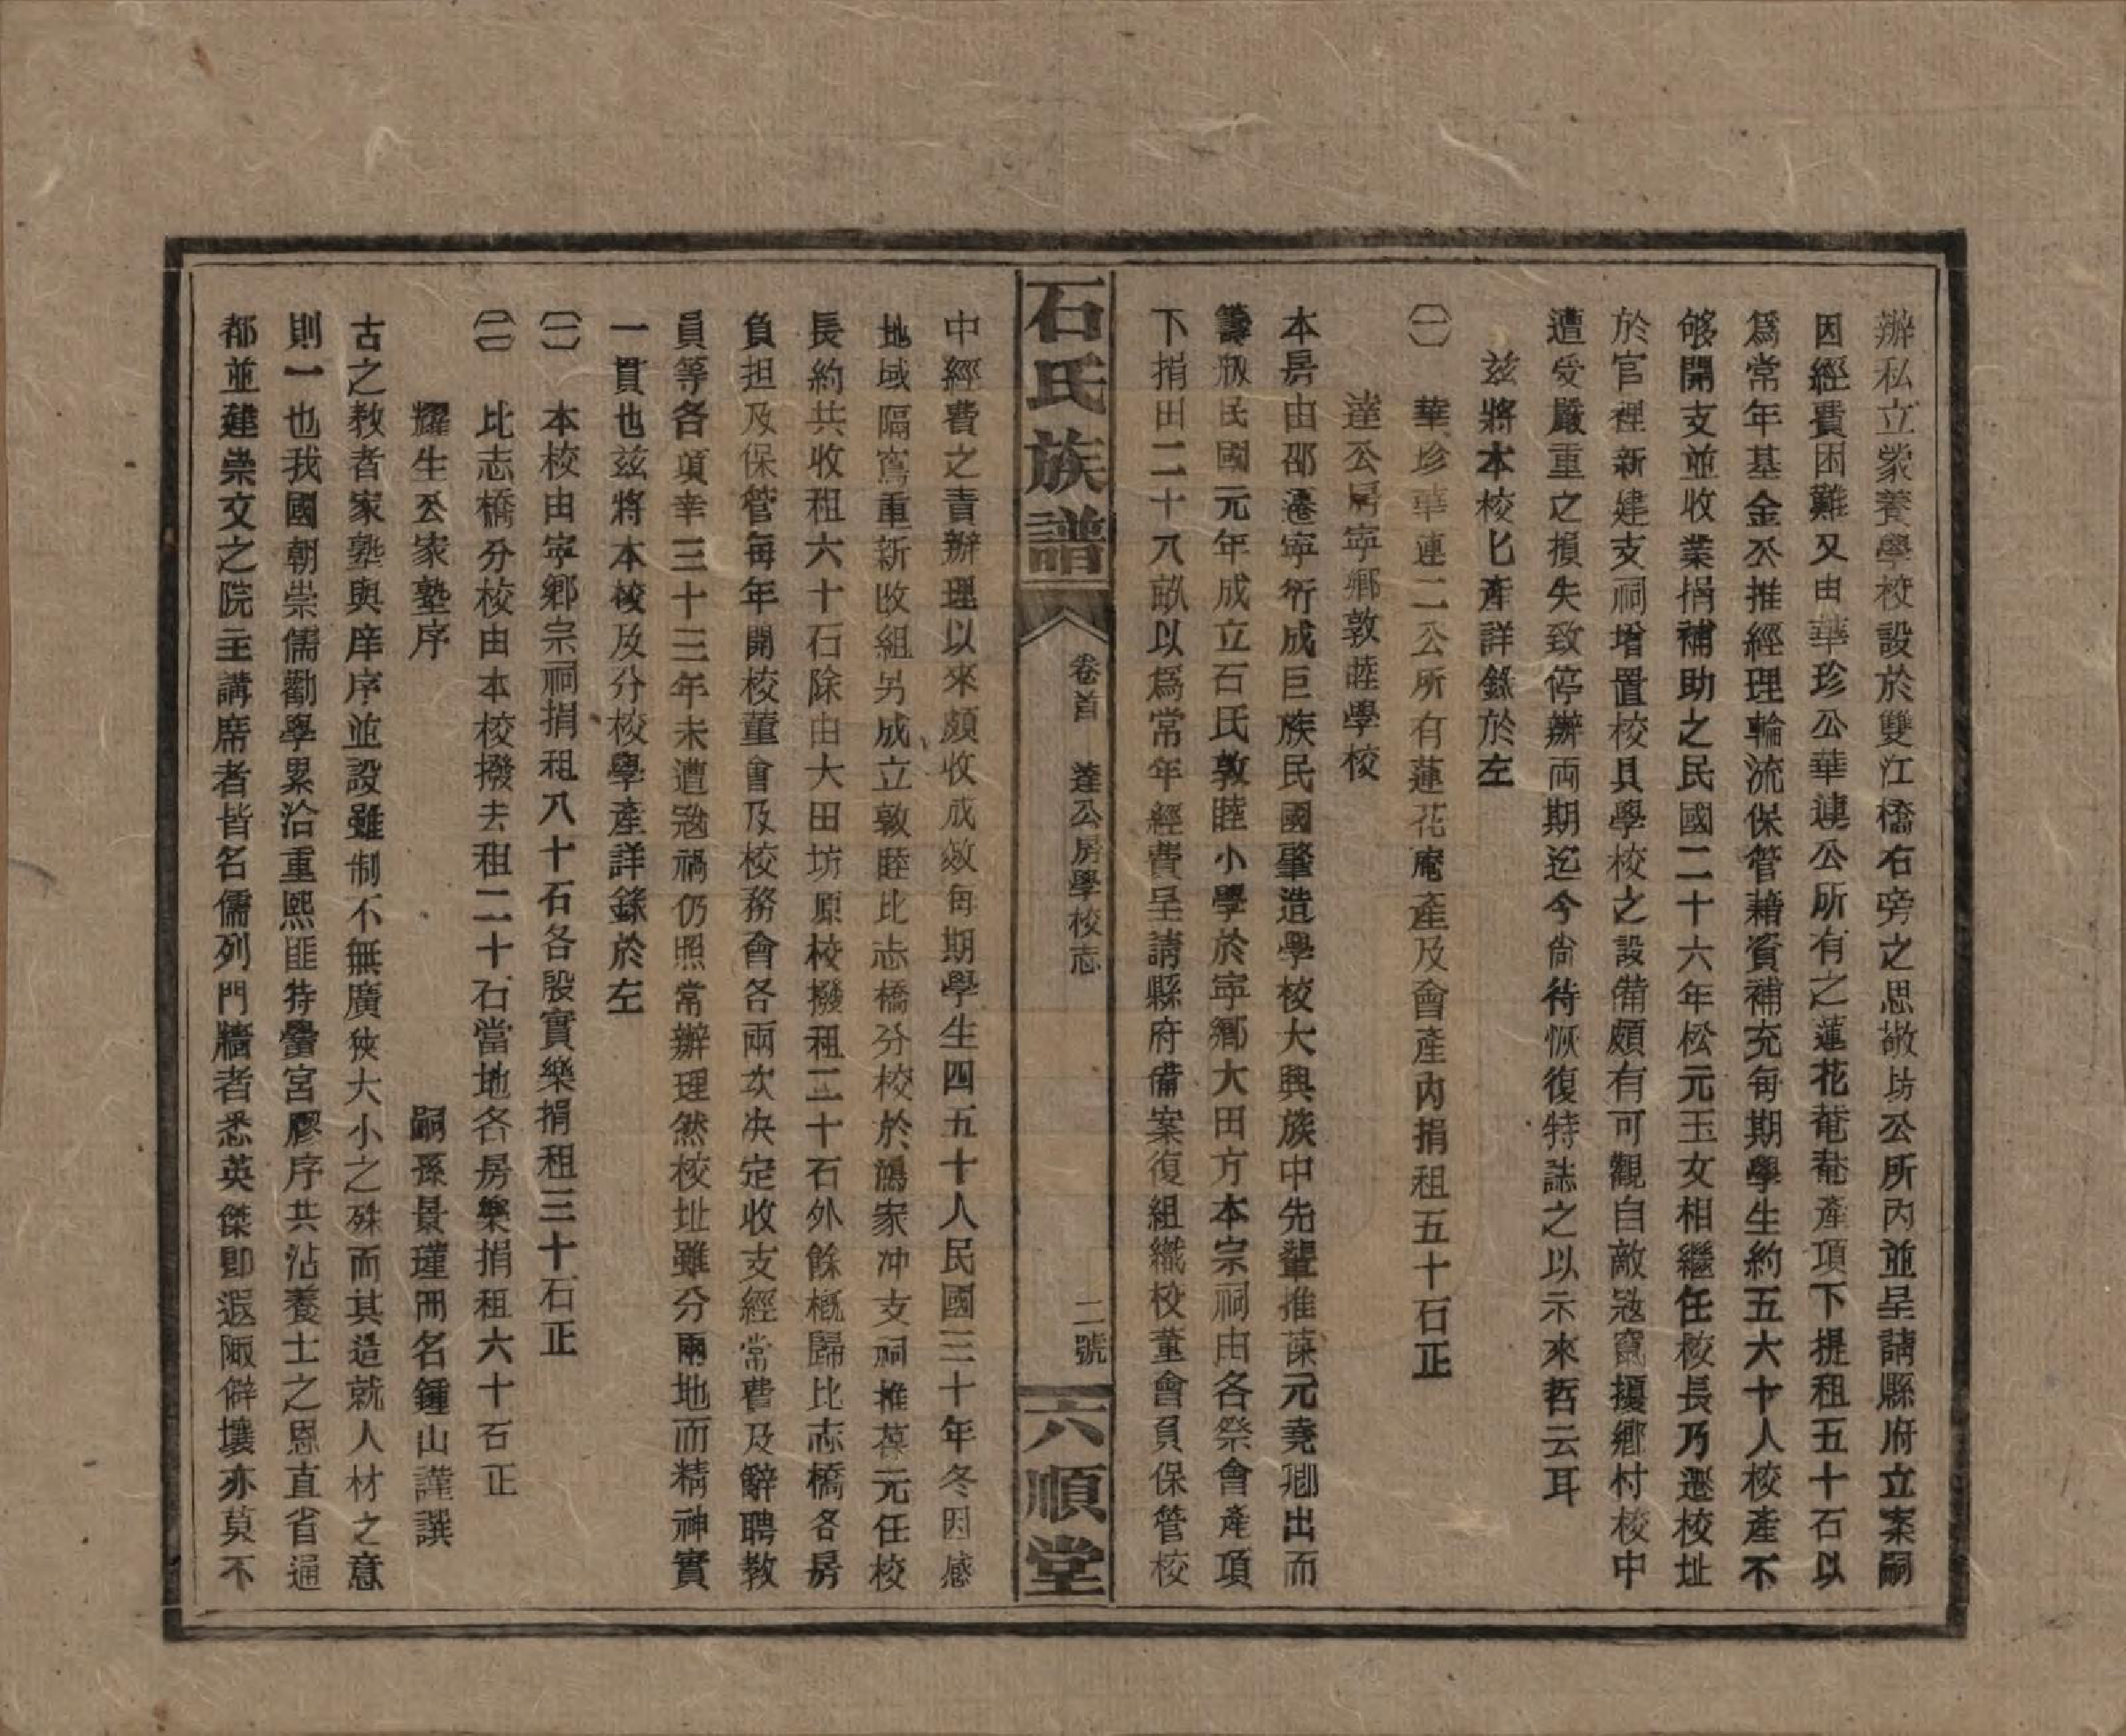 辦私立蒙養學校設於雙江橋右旁之思敬坊公所內並呈請縣府立案嗣
因經費困難又由華珍公華連公所有之蓮花菴菴產項下提租五十石以
爲常年基金公推經理輪流保管藉資補充每期學生約五六十人校產不
够開支並收業捐補助之民國二十六年松元玉女相繼任校長乃遷校址
於官裡新建支祠增置校具學校之設備頗有可觀自敵寇竄擾鄉村校中
遭受嚴重之損失致停辦両期迄今尙待恢復特誌之以示來哲云耳
兹將本校匕產詳錄於左
㈠　華珍華連二公所有蓮花庵產及會產內捐租五十石正
達公房寧鄉敦睦學校
本房由邵遷寧衍成巨族民國肇造學校大興族中先輩推葆元堯卿出而
籌版民國元年成立石氏敦睦小學於寧鄉大田方本宗祠由各祭會產項
下捐田二十八畝以爲常年經費呈請縣府備案復組織校董會負保管校
石氏族譜
卷首　達公房學校志
二號
六順堂
中經費之責辦理以來頗收成效每期學生四五十人民國三十年冬因感
地域隔窵重新改組另成立敦睦比志橋分校於鴻家冲支祠推葆元任校
長約共收租六十石除由大田坊原校撥租二十石外餘概歸比志橋各房
負担及保管每年開校董會及校務會各兩次决定收支經常費及辭聘教
員等各項幸三十三年未遭寇禍仍照常辦理然校址雖分兩地而精神實
一貫也兹將本校及分校學產詳錄於左
㈠　本校由寧鄉宗祠捐租八十石各殷實樂捐租三十石正
㈡　比志橋分校由本校撥去租二十石當地各房樂捐租六十石正
耀生公家塾序
嗣孫景瑾冊名鍾山謹譔
古之教者家塾與庠序並設雖制不無廣狹大小之殊而其造就人材之意
則一也我國朝崇儒勸學累洽重熙匪特黌宮膠序共沾養士之恩直省通
都並建崇文之院主講席者皆名儒列門牆者悉英傑卽遐陬僻壤亦莫不